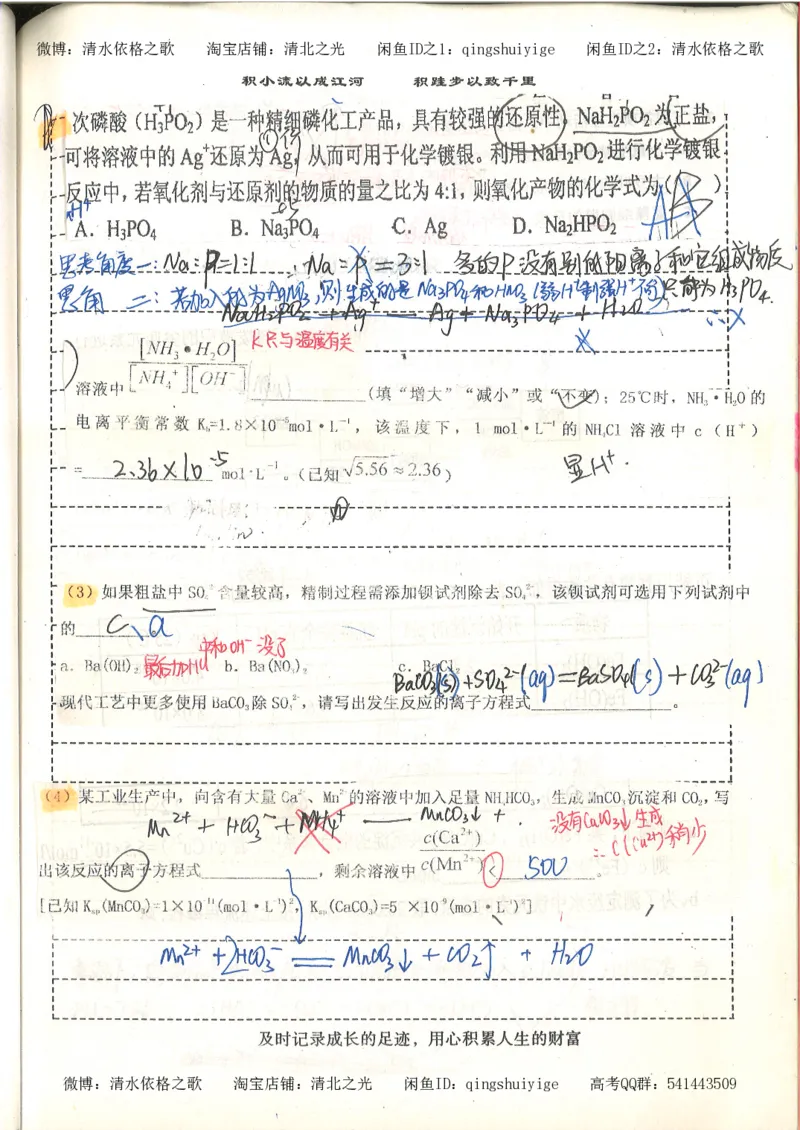 微博：清水依格之歌 淘宝店铺：清北之光 闲鱼ID之1：qingshuiyige 闲鱼ID之2：清水依格之歌
积小流以成江河 积跬步以致千里
次磷酸（H₃PO₂）是一种精细磷化工产品，具有较强的还原性，NaH₂PO₂为正盐，
+1
可将溶液中的Ag⁺还原为Ag，从而可用于化学镀银。利用NaH₂PO₂进行化学镀银
反应中，若氧化剂与还原剂的物质的量之比为4:1，则氧化产物的化学式为（ ）
A
+5
A．H₃PO₄ B．Na₃PO₄ C．Ag D．Na₂HPO₂
思考角度一：Na：P=1:1 ∴Na：P=3:1 × 多的P没有别的阳离子和它组成物质
思角 二：若加入称为AgNO₃，则生成的是Na₃PO₄和HNO₃ 只能为H₃PO₄．
NaH₂PO₂ + Ag⁺ — Ag + Na₃PO₄ + H₂O ∴×
[NH₃•H₂O] K只与温度有关
溶液中 [NH₄⁺][OH⁻] （填“增大”“减小”或“不变）；25℃时，NH₃·H₂O的
电离平衡常数 Kb=1.8×10⁻⁵mol·L⁻¹，该温度下，1 mol·L⁻¹的NH₄Cl溶液中c（H⁺）
= 2.36×10⁻⁵ mol·L⁻¹。（已知√5.56≈2.36） 显H⁺．
（3）如果粗盐中SO₄²⁻含量较高，精制过程需添加钡试剂除去SO₄²⁻，该钡试剂可选用下列试剂中
的 C、a
中和OH⁻没了
a．Ba(OH)₂ 最后加HCl b．Ba(NO₃)₂ c．BaCl₂
BaCO₃(s)+SO₄²⁻(aq)=BaSO₄(s)+CO₃²⁻(aq)
现代工艺中更多使用BaCO₃除SO₄²⁻，请写出发生反应的离子方程式 。
（4）某工业生产中，向含有大量Ca²⁺、Mn²⁺的溶液中加入足量NH₄HCO₃，生成MnCO₃沉淀和CO₂，写
Mn²⁺ + HCO₃⁻ + NH₄⁺ — MnCO₃↓ + . 没有CaCO₃↓生成
c(Ca²⁺) ∴c(Ca²⁺)稍少
出该反应的离子方程式 ，剩余溶液中 c(Mn²⁺) < 500 。
[已知Ksp(MnCO₃)=1×10⁻¹¹(mol·L⁻¹)²，Ksp(CaCO₃)=5 ×10⁻⁹(mol·L⁻¹)²]
Mn²⁺ + 2HCO₃⁻ = MnCO₃↓ + CO₂↑ + H₂O
及时记录成长的足迹，用心积累人生的财富
微博：清水依格之歌 淘宝店铺：清北之光 闲鱼ID：qingshuiyige 高考QQ群：541443509